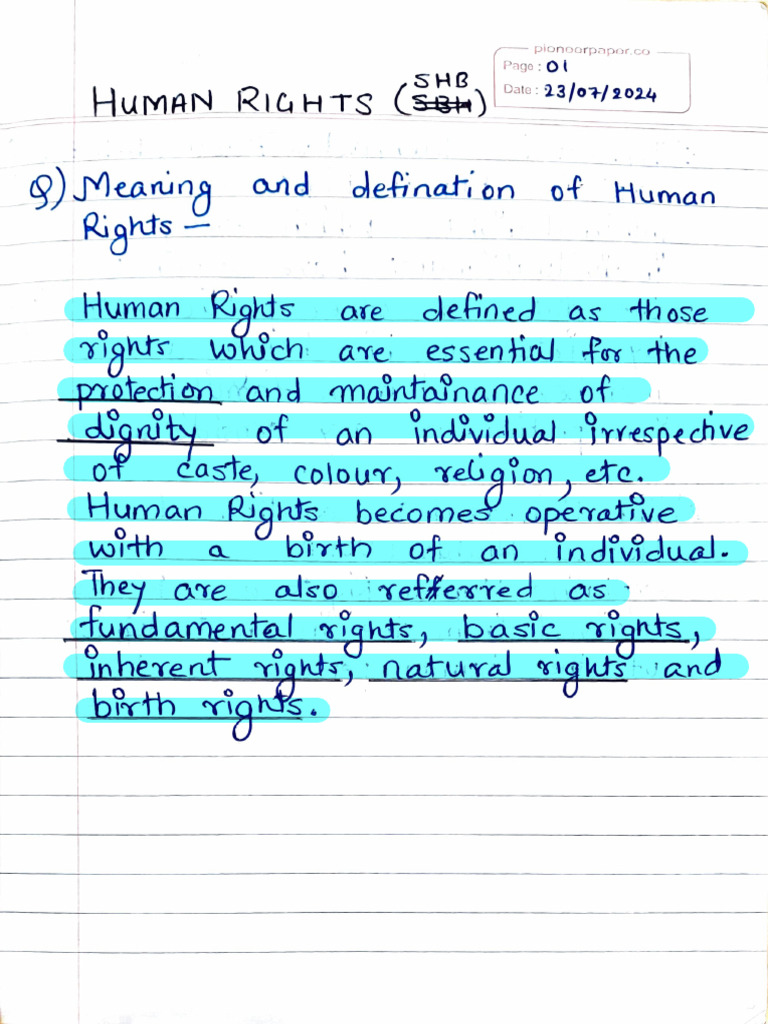 pioneerpaper.co
Page: 01
Date: 23/07/2024
SHB
HUMAN RIGHTS (SBH)
Q) Meaning and defination of Human
Rights —
Human Rights are defined as those
rights which are essential for the
protection and maintainance of
dignity of an individual irrespective
of caste, colour, religion, etc.
Human Rights becomes operative
with a birth of an individual.
They are also refferred as
fundamental rights, basic rights,
inherent rights, natural rights and
birth rights.